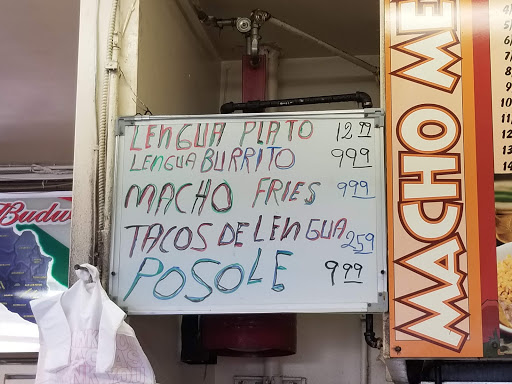 LENGUA PLATO 12.99
LENGUA BURRITO 9.99
MACHO FRIES 9.99
TACOS DE LENGUA 2.59
POSOLE 9.99
Budw
MACHO ME
4
5
6/
7/
8
9
10
11
12
13
14